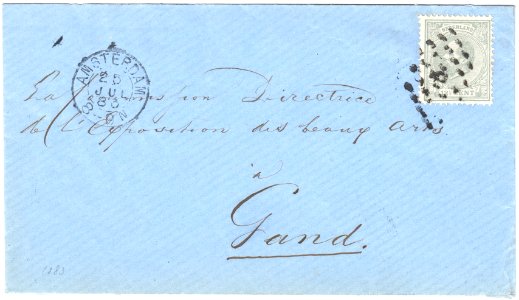 AMSTERDAM
25
JUL
83
La Commission Directrice
de l'Exposition des beaux Arts
à
Gand.
1883